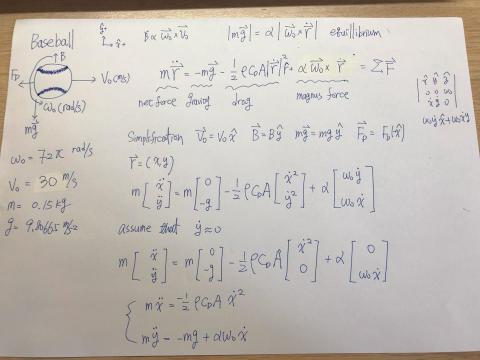 Baseball
B ∝ ω₀ × V₀
|mg⃗| = α|ω⃗₀ × ṙ⃗| equilibrium
ŷ
x̂
B
F_D
V₀ (m/s)
ω₀ (rad/s)
mg⃗
m r̈⃗ = -mg⃗ - 1/2 ρC_DA|ṙ⃗|² r̂ + α ω⃗₀ × ṙ⃗ = ΣF⃗
net force gravity drag magnus force
x̂ ŷ ẑ
0 0 ω₀
ẋ ẏ 0
ω₀ẏ x̂ + ω₀ẋ ŷ
ω₀ = 72π rad/s
V₀ = 30 m/s
m = 0.15 kg
g = 9.80665 m/s²
Simplification V⃗₀ = V₀ x̂ B⃗ = B ŷ mg⃗ = mg ŷ F⃗_D = F_D(-x̂)
r⃗ = (x, y)
m [ẍ ÿ] = m [0 -g] - 1/2 ρC_DA [ẋ² ẏ²] + α [ω₀ẏ ω₀ẋ]
assume that ẏ ≈ 0
m [ẍ ÿ] = m [0 -g] - 1/2 ρC_DA [ẋ² 0] + α [0 ω₀ẋ]
mẍ = -1/2 ρC_DA ẋ²
mÿ = -mg + αω₀ẋ